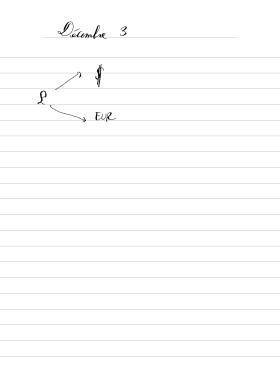 Décembre 3
$
£
EUR